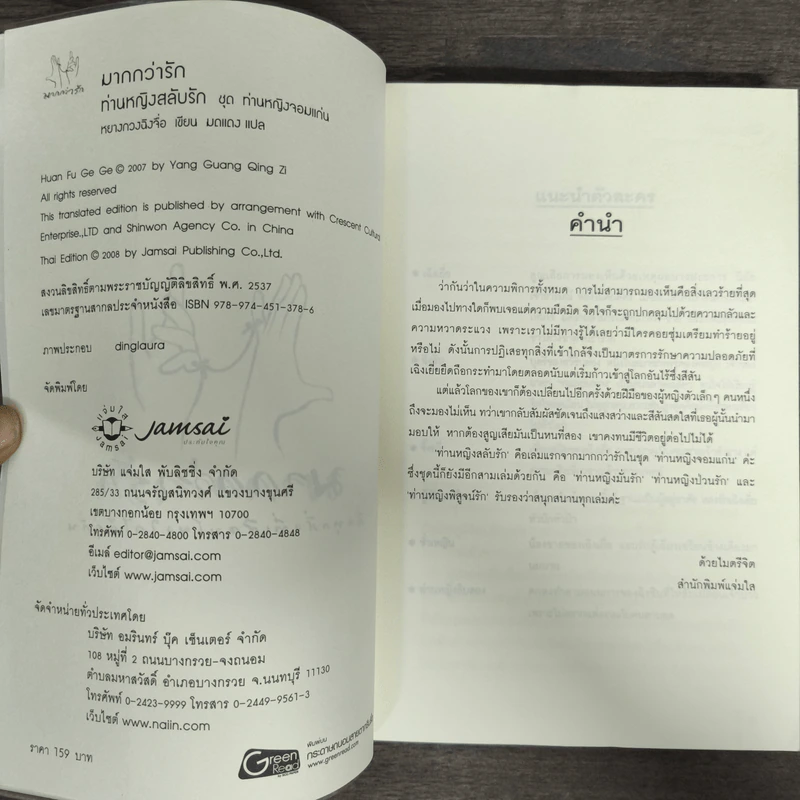 มากกว่ารัก
มากกว่ารัก
ท่านหญิงสลับรัก ชุด ท่านหญิงจอมแก่น
หยางกวงฉิงจื่อ เขียน มดแดง แปล
Huan Fu Ge Ge © 2007 by Yang Guang Qing Zi
All rights reserved
This translated edition is published by arrangement with Crescent Cultural
Enterprise.,LTD and Shinwon Agency Co. in China
Thai Edition © 2008 by Jamsai Publishing Co.,Ltd.
สงวนลิขสิทธิ์ตามพระราชบัญญัติลิขสิทธิ์ พ.ศ. 2537
เลขมาตรฐานสากลประจำหนังสือ ISBN 978-974-451-378-6
ภาพประกอบ dinglaura
จัดพิมพ์โดย
แจ่มใส
Jamsai
Jamsai
บริษัท แจ่มใส พับลิชชิ่ง จำกัด
285/33 ถนนจรัญสนิทวงศ์ แขวงบางขุนศรี
เขตบางกอกน้อย กรุงเทพฯ 10700
โทรศัพท์ 0-2840-4800 โทรสาร 0-2840-4848
อีเมล์ editor@jamsai.com
เว็บไซต์ www.jamsai.com
จัดจำหน่ายทั่วประเทศโดย
บริษัท อมรินทร์ บุ๊ค เซ็นเตอร์ จำกัด
108 หมู่ที่ 2 ถนนบางกรวย-จงถนอม
ตำบลมหาสวัสดิ์ อำเภอบางกรวย จ.นนทบุรี 11130
โทรศัพท์ 0-2423-9999 โทรสาร 0-2449-9561-3
เว็บไซต์ www.naiin.com
ราคา 159 บาท
Green
Read
พิมพ์บน
กระดาษถนอมสายตากรีนรี้ด
www.greenread.com
คำนำ
ว่ากันว่าในความพิการทั้งหมด การไม่สามารถมองเห็นคือสิ่งเลวร้ายที่สุด
เมื่อมองไปทางใดก็พบเจอแต่ความมืดมิด จิตใจก็จะถูกปกคลุมไปด้วยความกลัวและ
ความหวาดระแวง เพราะเราไม่มีทางรู้ได้เลยว่ามีใครคอยซุ่มเตรียมทำร้ายอยู่
หรือไม่ ดังนั้นการปฏิเสธทุกสิ่งที่เข้าใกล้จึงเป็นมาตรการรักษาความปลอดภัยที่
เฉิงเยี่ยยึดถือกระทำมาโดยตลอดนับแต่เริ่มก้าวเข้าสู่โลกอันไร้ซึ่งสีสัน
แต่แล้วโลกของเขาก็ต้องเปลี่ยนไปอีกครั้งด้วยฝีมือของผู้หญิงตัวเล็กๆ คนหนึ่ง
ถึงจะมองไม่เห็น ทว่าเขากลับสัมผัสชัดเจนถึงแสงสว่างและสีสันสดใสที่เธอผู้นั้นนำมา
มอบให้ หากต้องสูญเสียมันเป็นหนที่สอง เขาคงทนมีชีวิตอยู่ต่อไปไม่ได้
'ท่านหญิงสลับรัก' คือเล่มแรกจากมากกว่ารักในชุด 'ท่านหญิงจอมแก่น' ค่ะ
ซึ่งชุดนี้ก็ยังมีอีกสามเล่มด้วยกัน คือ 'ท่านหญิงมั่นรัก' 'ท่านหญิงป่วนรัก' และ
'ท่านหญิงพิสูจน์รัก' รับรองว่าสนุกสนานทุกเล่มค่ะ
ด้วยไมตรีจิต
สำนักพิมพ์แจ่มใส